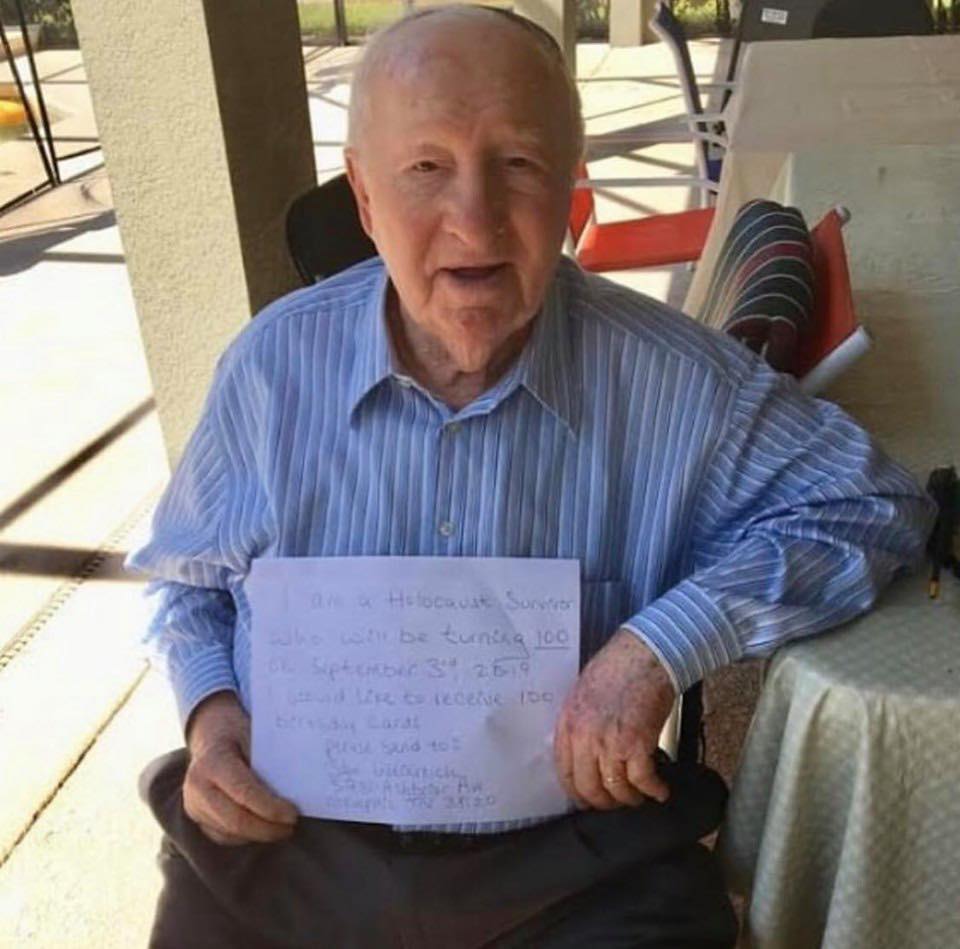 I am a Holocaust Survivor
who will be turning 100
on September 3rd 2019
I would like to receive 100
birthday cards
please send to:
Ashbriar Av
Memphis TN 38120